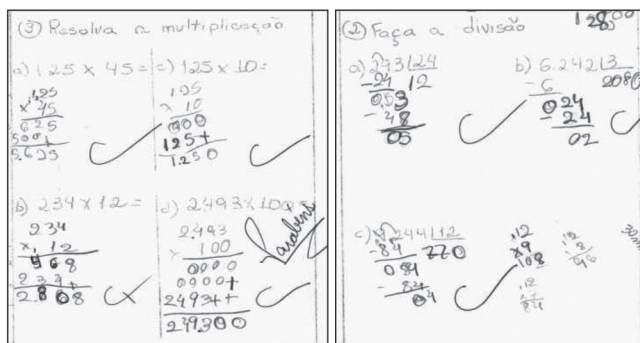 ③ Resolva a multiplicação
a) 125 x 45 =
125
x 45
625
500+
5.625
c) 125 x 10 =
125
x 10
000
125+
1.250
b) 234 x 12 =
234
x 12
468
234+
2.808
d) 2.493 x 100
2.493
x 100
0000
0000+
2493++
249.300
Parabéns
② Faça a divisão
a) 293 24
-24 12
053
-48
05
b) 6.242 3
-6 2080
024
-24
02
c) 244 12
-84 770
084
-84
04
12
x9
108
12
84